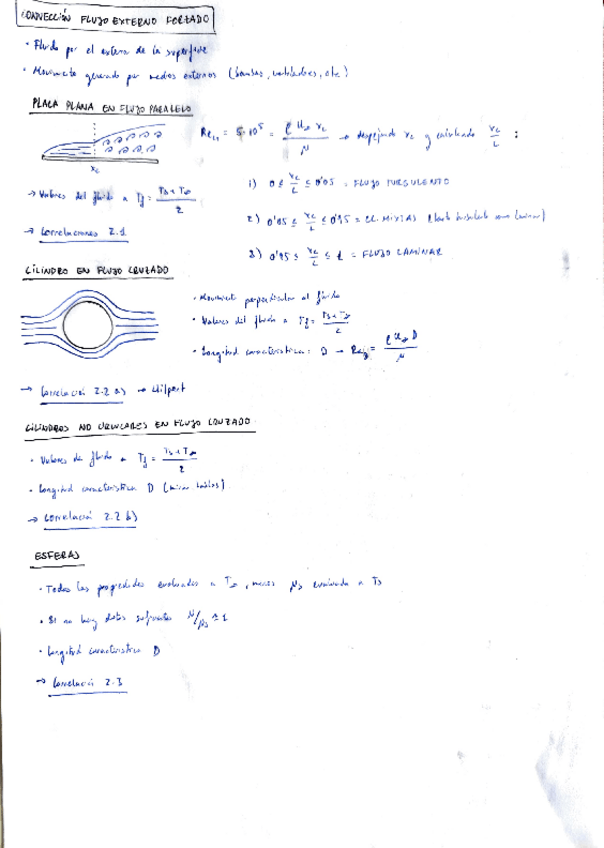 CONVECCIÓN FLUJO EXTERNO FORZADO
· Fluido por el exterior de la superficie
· Movimiento generado por medios externos (bombas, ventiladores, etc)
PLACA PLANA EN FLUJO PARALELO
Re_xc = 5·10^5 = ρ u∞ xc / μ → despejando xc y calculando xc/L :
xc
1) 0 ≤ xc/L ≤ 0'05 = FLUJO TURBULENTO
→ Valores del fluido a Tf = Ts + T∞ / 2
2) 0'05 ≤ xc/L ≤ 0'95 = CC. MIXTAS (tanto turbulento como laminar)
→ Correlaciones 2.1
3) 0'95 ≤ xc/L ≤ 1 = FLUJO LAMINAR
CILINDRO EN FLUJO CRUZADO
· Movimiento perpendicular al fluido
· Valores del fluido a Tf = Ts + T∞ / 2
· Longitud característica: D → Re_D = ρ u∞ D / μ
→ Correlació 2.2 a) → Hilpert
CILINDROS NO CIRCULARES EN FLUJO CRUZADO
· Valores de fluido a Tf = Ts + T∞ / 2
· Longitud característica D (mirar tablas)
→ Correlació 2.2 b)
ESFERAS
· Todas las propiedades evaluadas a T∞, menos μs evaluada a Ts
· Si no hay datos suficientes μ/μs ≅ 1
· Longitud característica D
→ Correlació 2.3